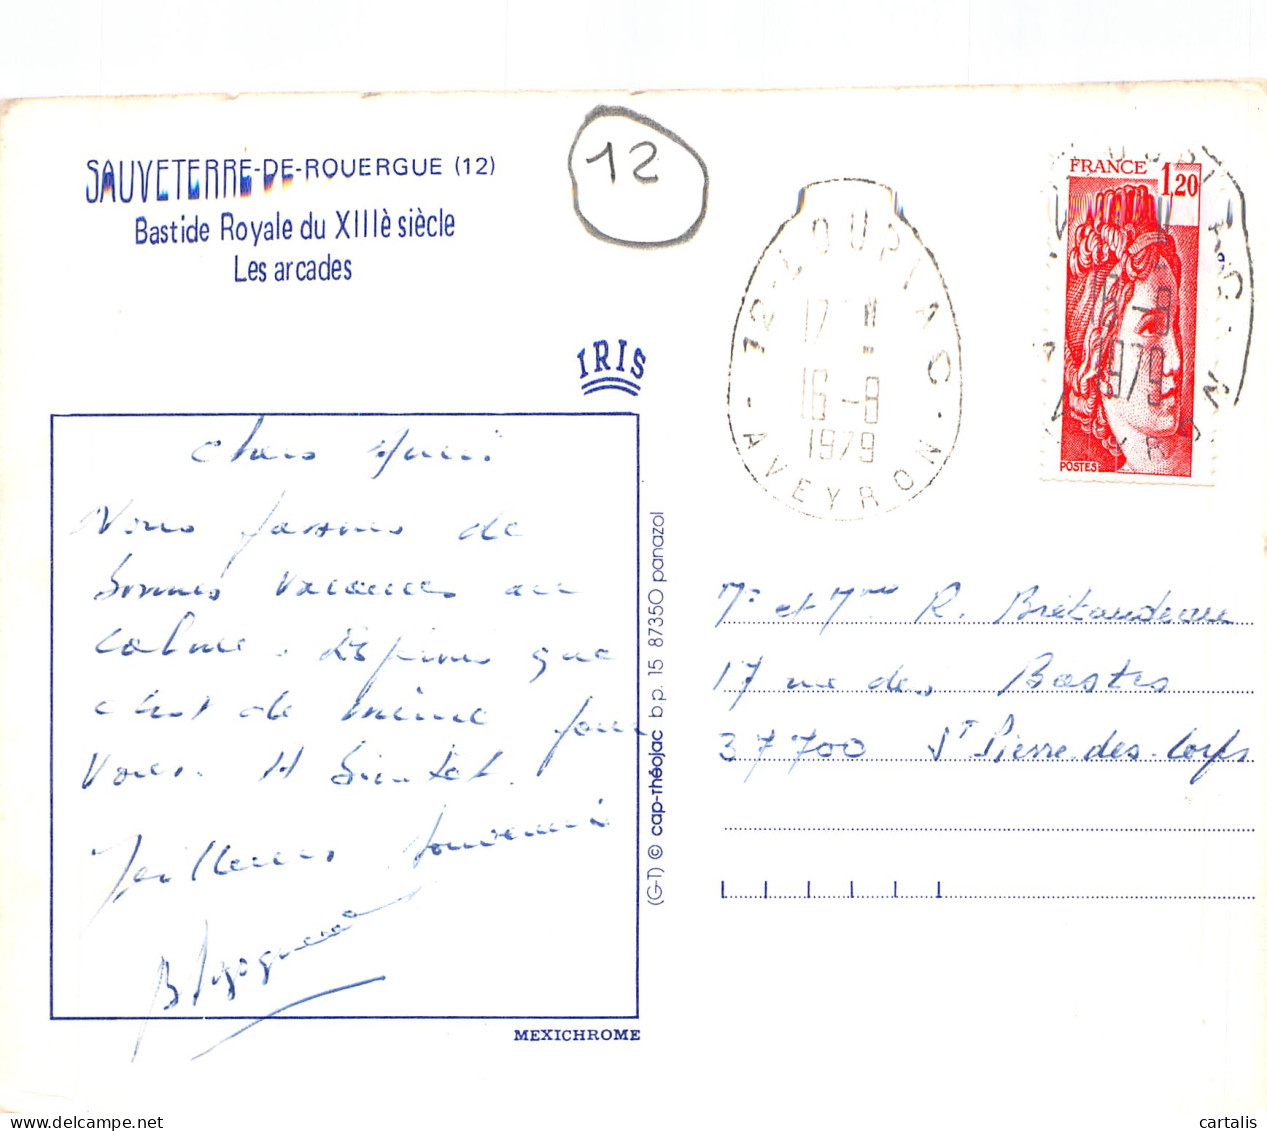 SAUVETERRE-DE-ROUERGUE (12)
Bastide Royale du XIIIè siècle
Les arcades
12
IRIS
12-LOUPIAC
17 H
16-8
1979
AVEYRON
FRANCE 1,20
16-8
1979
POSTES
Chers Amis.
Nous passons de
bonnes vacances au
calme. Espérons que
c'est de même pour
vous. A bientôt.
Meilleurs souvenirs
MEXICHROME
(G-T) © cap-théojac b.p. 15 87350 panazol
Mr et Mme R. Brétaudeau
17 rue des Bastes
37700 St Pierre-des-Corps
cartalis